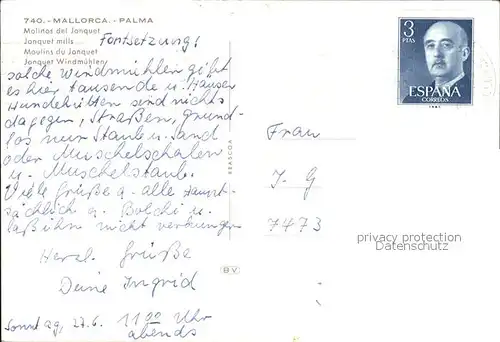 740.-MALLORCA.-PALMA
Molinos del Jonquet
Jonquet mills
Moulins du Jonquet
Jonquet Windmühlen
Fortsetzung!
solche Windmühlen gibt
es hier tausende u. Häuser
Hundehütten sind nichts
dagegen, Straßen, grund-
los nur Staub u. Sand
oder Muschelschalen
u. Muschelstaub.
Viele Grüße a. alle haupt-
sächlich a. Bolchi u.
laß ihn nicht verhungern
Herzl. Grüße
Deine Ingrid
Sonntag, 27.6. 11 00 Uhr
abends
BV
3
PTAS
ESPAÑA
CORREOS
Frau
I G
7473
privacy protection
Datenschutz